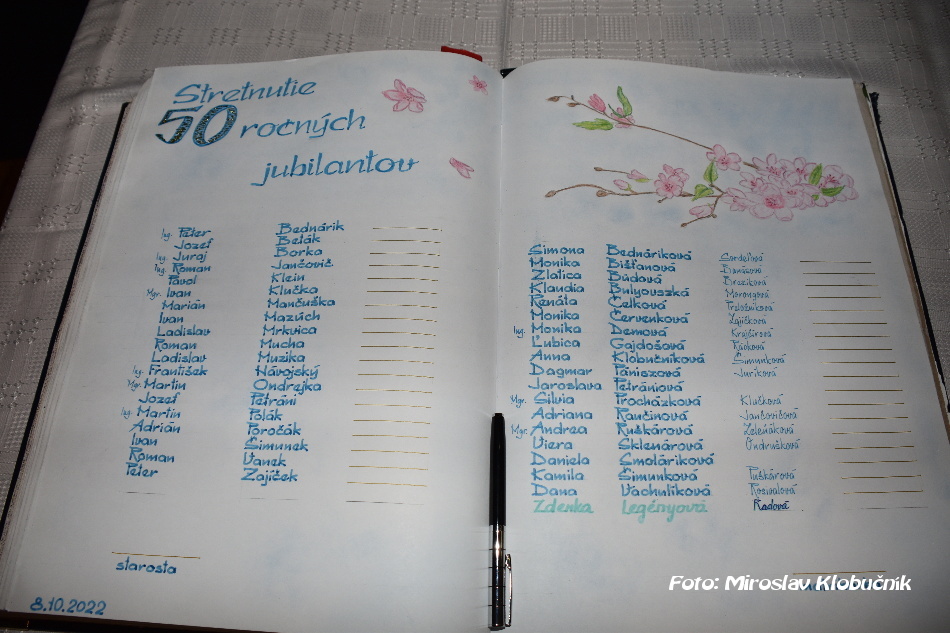 Stretnutie
50 ročných
jubilantov
Ing. Peter Bednárik
Jozef Beták
Ing. Juraj Borka
Ing. Roman Jančovič
Pavol Klein
Mgr. Ivan Klučka
Marián Mančuška
Ivan Mazúch
Ladislav Mrkvica
Roman Mucha
Ladislav Muzika
Ing. František Návojský
Mgr. Martin Ondrejka
Jozef Petráni
Ing. Martin Polák
Adrián Poročák
Ivan Šimunek
Roman Vanek
Peter Zajíček
starosta
8.10.2022
Simona Bednáriková
Monika Bišťanová
Zlatica Búdová Brezíková
Klaudia Bulyovszká
Renáta Čelková
Monika Červenková Zajíčková
Ing. Monika Demová Krajčírová
Ľubica Gajdošová
Anna Klobučníková Šimunková
Dagmar Pániszová Juríková
Jaroslava Petrániová
Mgr. Silvia Procházková Klučková
Adriana Raučinová Jančovičová
Mgr. Andrea Ruškárová Zeleňáková
Viera Sklenárová Ondrušková
Daniela Smoláriková
Kamila Šimunková Puškárová
Dana Vachulíková
Zdenka Legényová Radová
Foto: Miroslav Klobučník